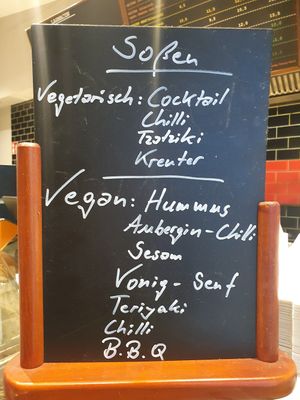 Soßen
Vegetarisch: Cocktail
Chilli
Tzatziki
Kreuter
Vegan: Hummus
Aubergin-Chilli
Sesam
Vonig-Senf
Teriyaki
Chilli
B.B.Q